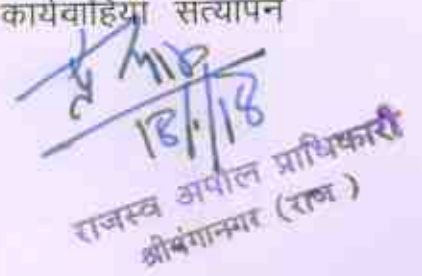 कार्यवाहियां सत्यापन
18/1/18
राजस्व अपील प्राधिकारी
श्रीगंगानगर (राज)